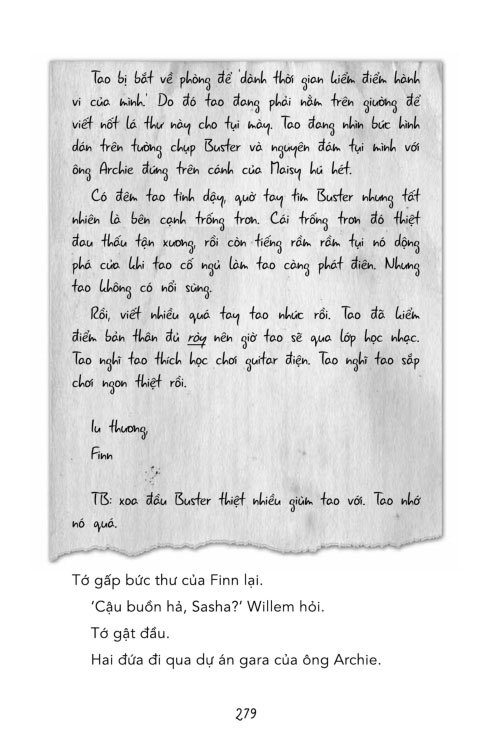 Tao bị bắt về phòng để 'dành thời gian kiểm điểm hành
vi của mình.' Do đó tao đang phải nằm trên giường để
viết nốt lá thư này cho tụi mày. Tao đang nhìn bức hình
dán trên tường chụp Buster và nguyên đám tụi mình với
ông Archie đứng trên cánh của Maisy hú hét.
Có đêm tao tỉnh dậy, quờ tay tìm Buster nhưng tất
nhiên là bên cạnh trống trơn. Cái trống trơn đó thiệt
đau thấu tận xương, rồi còn tiếng rầm rầm tụi nó dộng
phá cửa khi tao cố ngủ làm tao càng phát điên. Nhưng
tao không có nổi sùng.
Rồi, viết nhiều quá tay tao nhức rồi. Tao đã kiểm
điểm bản thân đủ rày nên giờ tao sẽ qua lớp học nhạc.
Tao nghĩ tao thích học chơi guitar điện. Tao nghĩ tao sắp
chơi ngon thiệt rồi.
Iu thương,
Finn
TB: xoa đầu Buster thiệt nhiều giùm tao với. Tao nhớ
nó quá.
Tớ gấp bức thư của Finn lại.
'Cậu buồn hả, Sasha?' Willem hỏi.
Tớ gật đầu.
Hai đứa đi qua dự án gara của ông Archie.
279